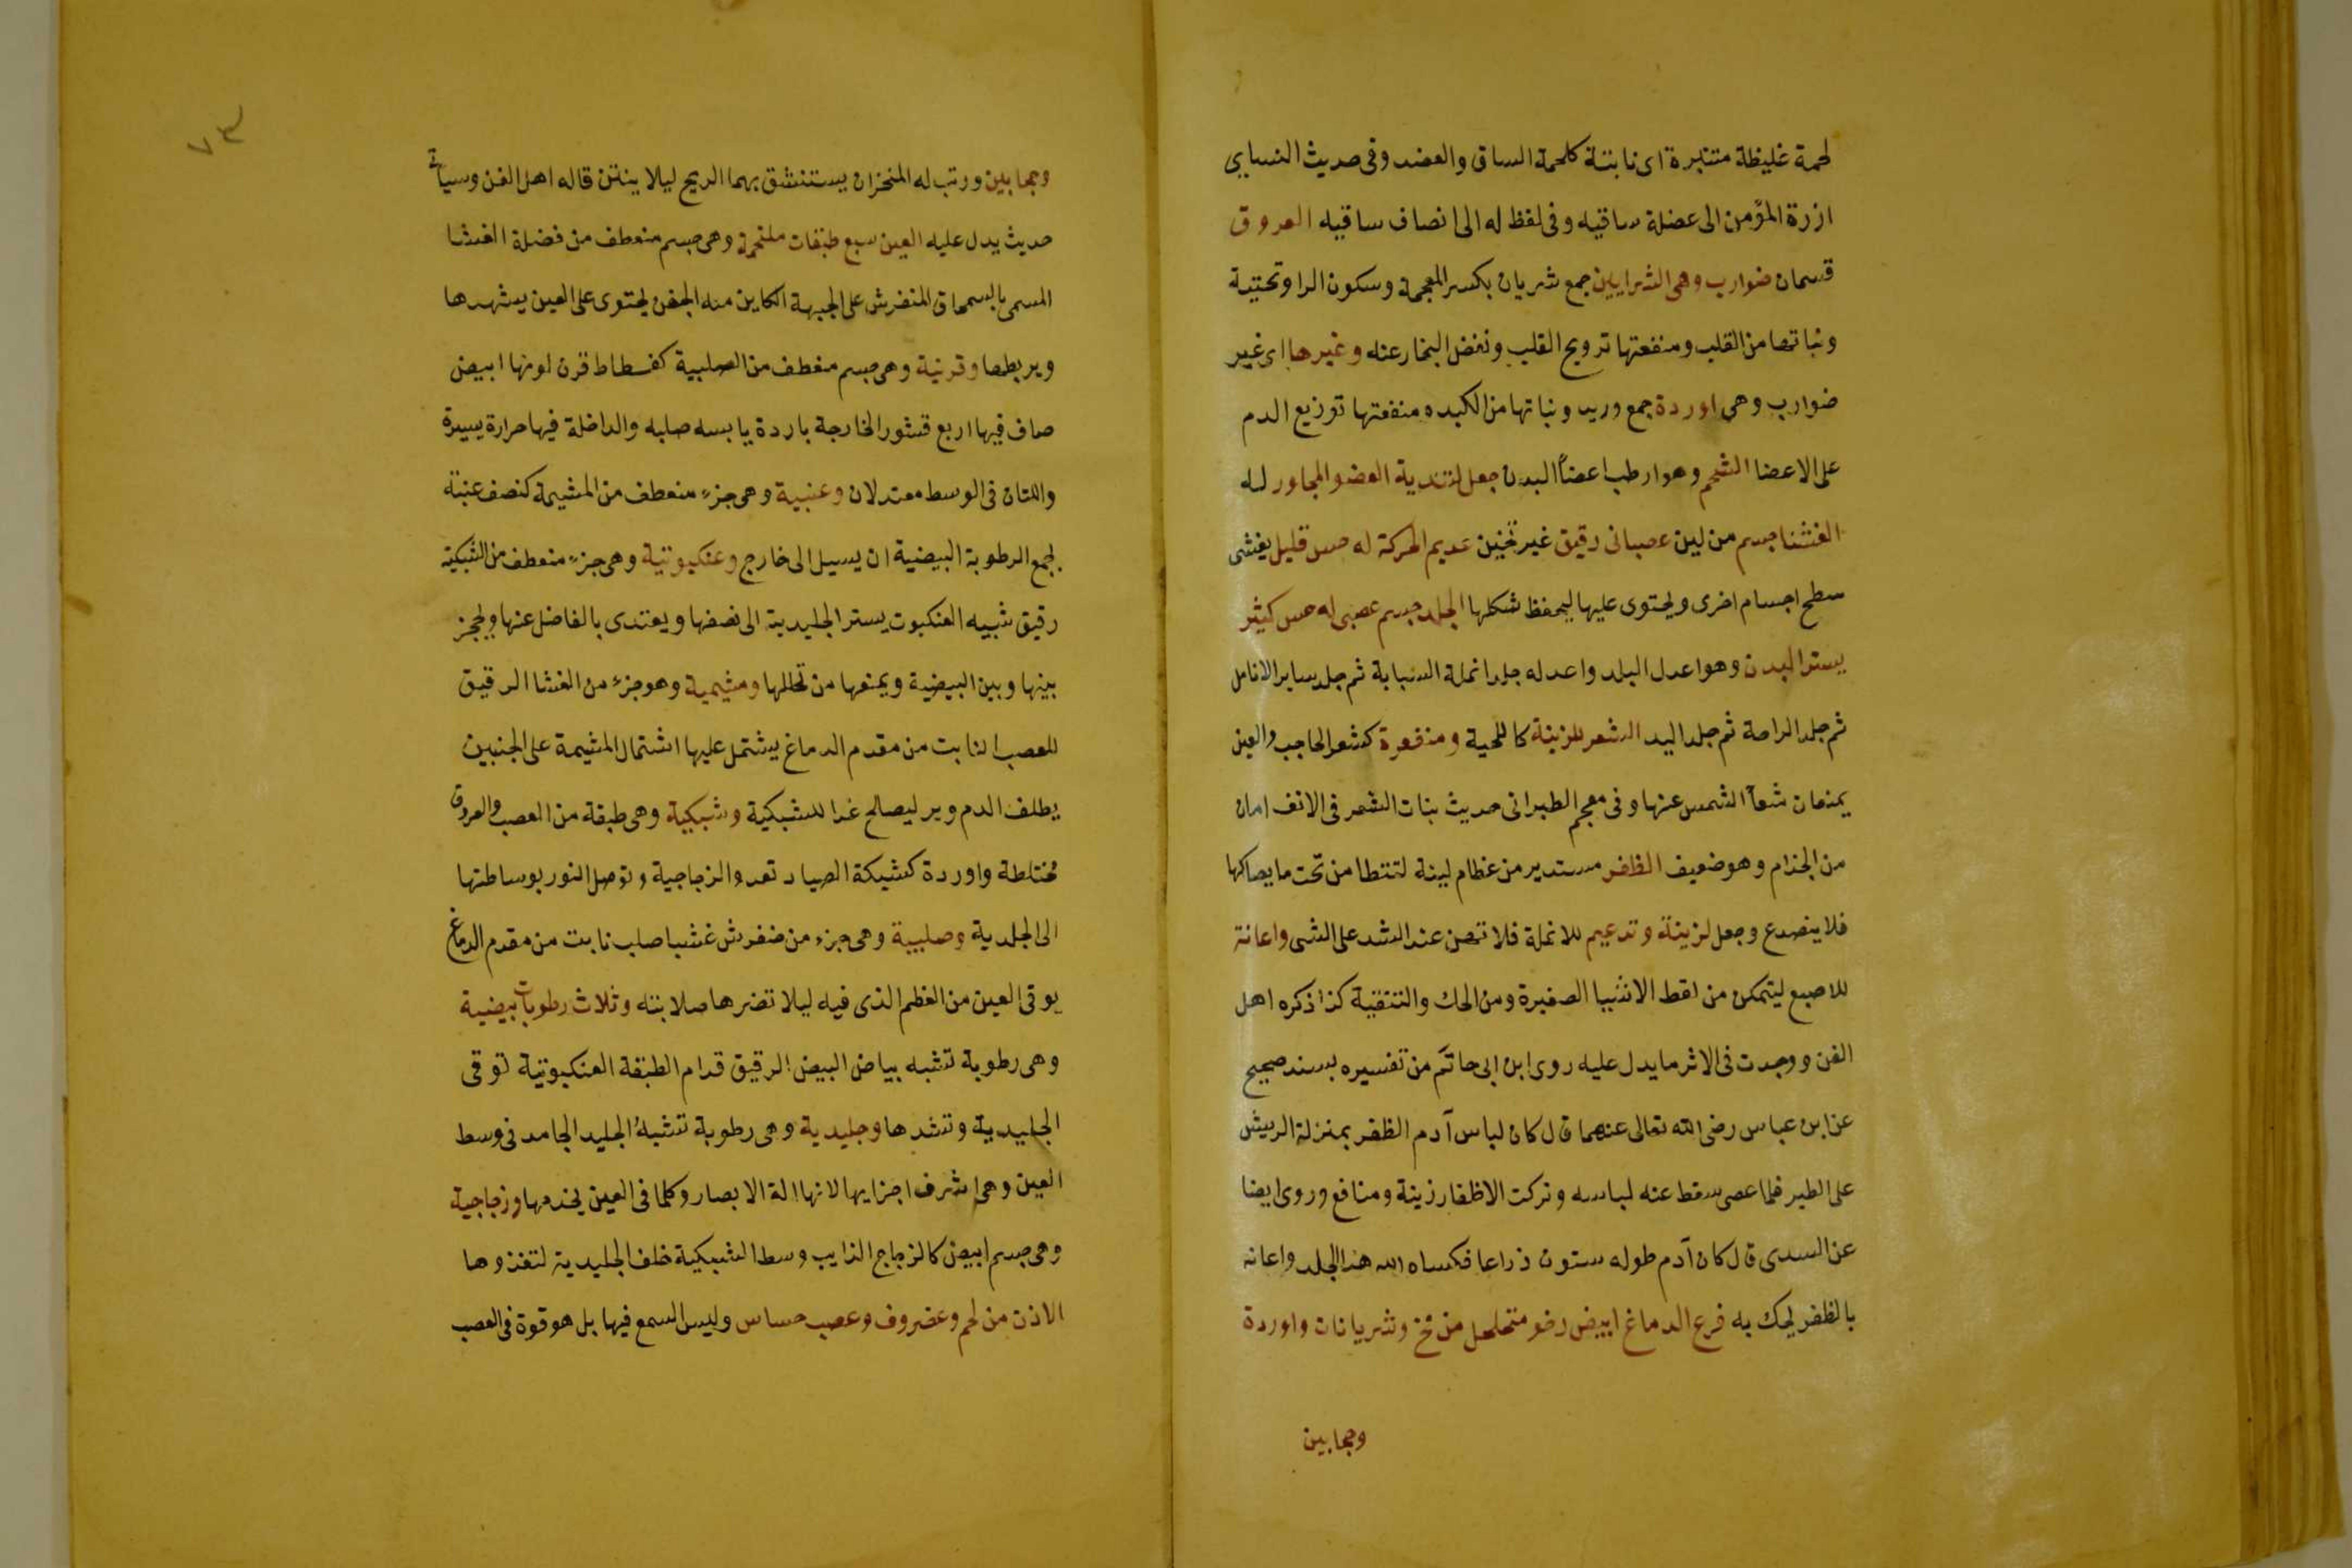 لحمة غليظة متنبرة اى نابتة كلحمة الساق والعضد وفى حديث النساىى
ازرة المؤمن الى عضلة ساقيه وفى لفظ له الى انصاف ساقيه العروق
قسمان ضوارب وهى الشرايين جمع شريان بكسر المعجمة وسكون الرا وتحتية
ونباتها من القلب ومنفعتها ترويح القلب ونفض البخار عنه وغيرها اى غير
ضوارب وهى اوردة جمع وريد ونباتها من الكبد ه منفعتها توزيع الدم
على الاعضا الشحم وهو ارطب اعضا البدن جعل لتندية العضو المجاور له
الغشا جسم من لين عصبانى رقيق غير ثخين عديم الحركة له حس قليل يغشى
سطح اجسام اخرى ويحتوى عليها ليحفظ شكلها الجلد جسم عصبى له حس كثير
يستر البدن وهو اعدل البلد واعدله جلد انملة السبابة ثم جلد ساير الانامل
ثم جلد الراحة ثم جلد اليد الشعر للزينة كاللحية ومنفعة كشعر الحاجب والعين
يمنعان شعآ الشمس عنها وفى معجم الطبرانى حديث نبات الشعر فى الانف امان
من الجذام وهو ضعيف الظفر مستدير من عظام لينة لتتطا من تحت ما يصاكها
فلا ينصدع وجعل لزينة وتدعيم للانملة فلا تهن عند الشد على الشى واعانة
للاصبع ليتمكن من لقط الاشيا الصغيرة ومن الحك والتنقية كذا ذكره اهل
الفن ووجدت فى الاثر ما يدل عليه روى ابن ابى حاتم من تفسيره بسند صحيح
عن ابن عباس رضى الله تعالى عنهما قال كان لباس آدم الظفر بمنزلة الريش
على الطير فلما عصى سقط عنه لباسه وتركت الاظفار زينة ومنافع وروى ايضا
عن السدى قال كان آدم طوله ستون ذراعا فكساه الله هذا الجلد واعانه
بالظفر يحك به فرع الدماغ ابيض رخو متخلخل من مخ وشريانات واوردة
وحجابين
٧٣
وحجابين ورتب له المنخران يستنشق بهما الريح ليلا ينتن قاله اهل الفن وسياتى
حديث يدل عليه العين سبع طبقات ملتحمة وهى جسم منعطف من فضلة الغشا
المسمى بالسمحاق المنفرش على الجبهة الكاين منه الجفن يحتوى على العين يشهدها
ويربطها وقرنية وهى جسم منعطف من الصلبية كفسطاط قرن لونها ابيض
صاف فيها اربع قشور الخارجة باردة يابسه صلبه والداخلة فيها حرارة يسيرة
واللتان فى الوسط معتدلان وعنبية وهى جزء منعطف من المشيمة كنصف عنبة
لجمع الرطوبة البيضية ان يسيل الى خارج وعنكبوتية وهى جزء منعطف من الشبكية
رقيق شبيه العنكبوت يستر الجليدية الى نصفها ويغتدى بالفاضل عنها ويحجز
بينها وبين البيضية ويمنعها من تحللها ومشيمية وهو جزء من الغشا الرقيق
للعصب النابت من مقدم الدماغ يشتمل عليها اشتمال المشيمة على الجنين
يطلف الدم وير ليصالح غدا للشبكية وشبكية وهى طبقة من العصب والعروق
مختلطة واوردة كشبكة الصياد تعدو الزجاجية وتوصل النور بوساطتها
الى الجلدية وصلبية وهى جزء من منفرش غشيا صلب نابت من مقدم الدماغ
يوقى العين من العظم الذى فيه ليلا تضرها صلابته وثلاث رطوبات بيضية
وهى رطوبة تشبه بياض البيض الرقيق قدام الطبقة العنكبوتية توقى
الجليدية وتشدها وجليدية وهى رطوبة تشبه الجليد الجامد فى وسط
العين وهى اشرف اجزايها لانها الة الابصار وكلما فى العين يخدمها وزجاجية
وهى جسم ابيض كالزجاج الذايب وسط الشبكية خلف الجليدية لتغذوها
الاذن من لحم وغضروف وعصب حساس وليس السمع فيها بل هو قوة فى العصب